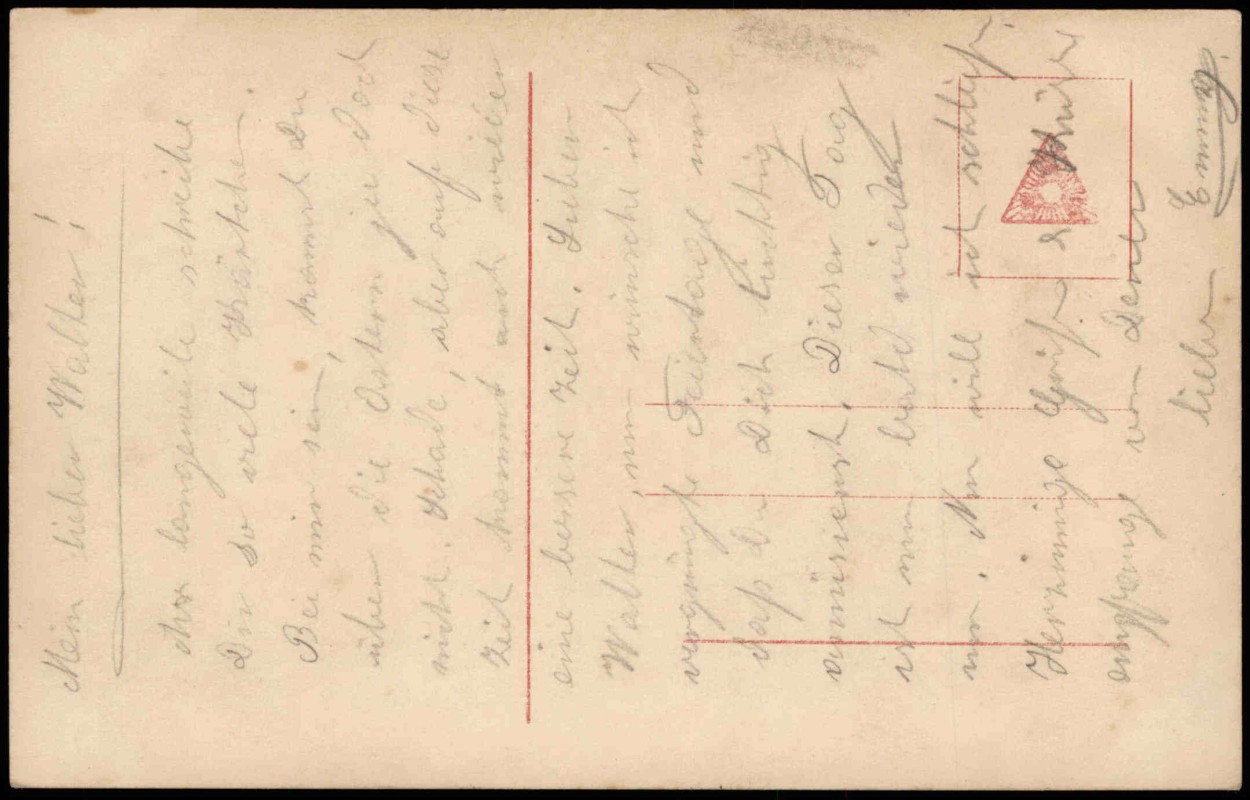 Mein lieber Walter!
Aus langeweile schreibe
Dir so viele Kärtchen.
Bei mir sein, kannst Du
über die Ostern ja doch
nicht. Schade, aber auf diese
Zeit kommt auch wieder
eine bessere Zeit. Lieber
Walter, nun wünsche ich
vergnügte Feiertage und
daß Du Dich tüchtig
amüsierst. Dieser Tag
ist nun bald wieder
um. Nun will ich schließ.
Herzinnige Grüße & Küsse
empfange von Deiner
lieben Emmy.